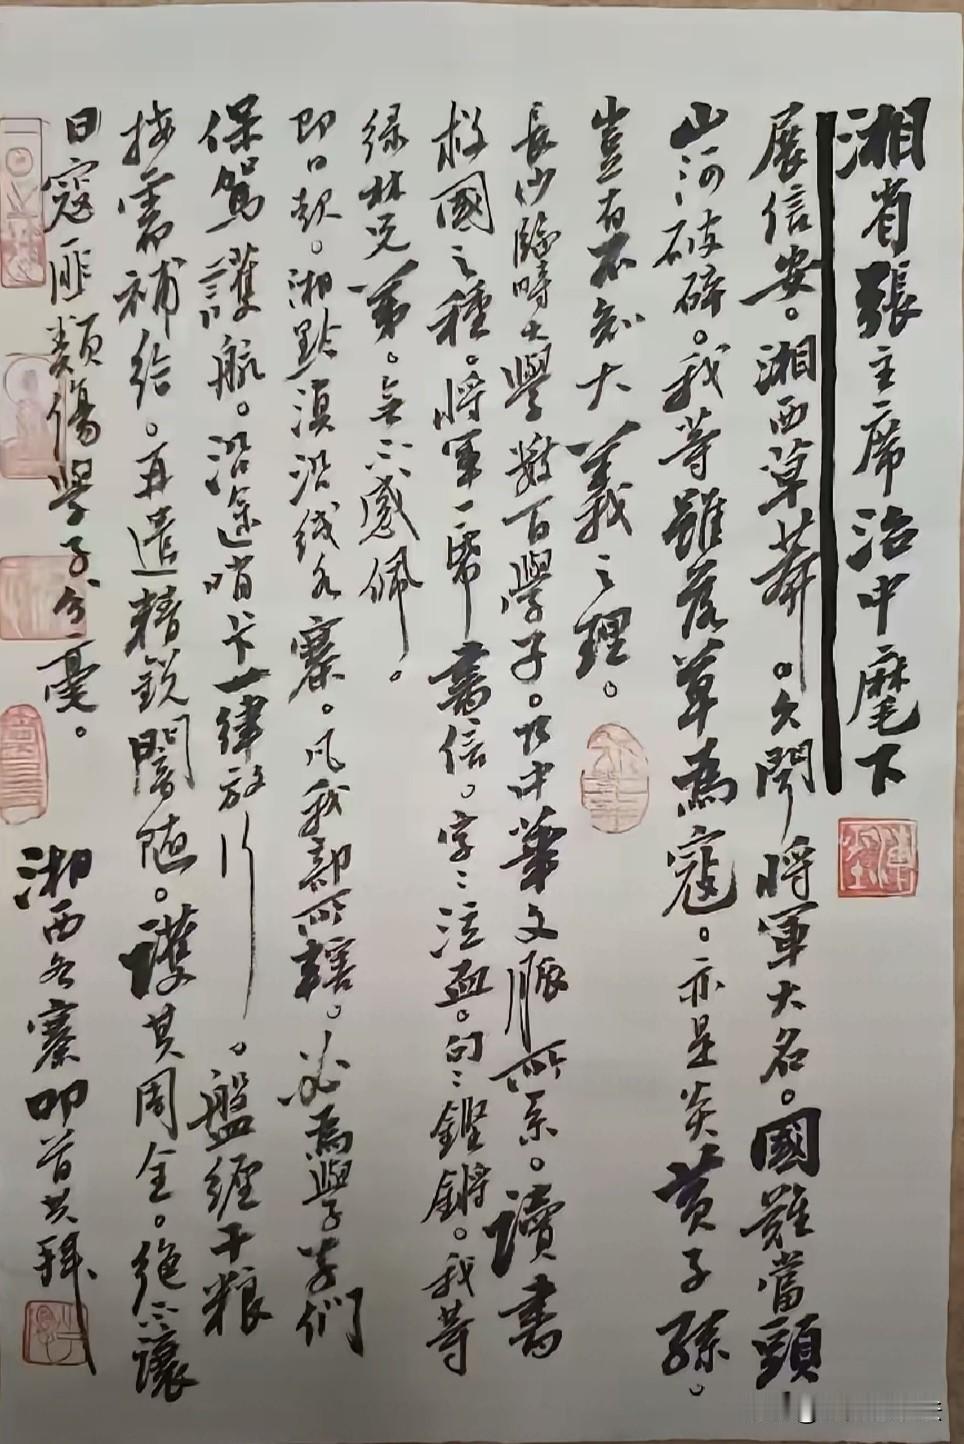 湘省張主席治中麾下
展信安。湘西草莽。久聞將軍大名。國難當頭
山河破碎。我等雖落草為寇。亦是炎黃子孫。
豈有不知大義之理。
長沙臨時大學數百學子。乃中華文脈所系。讀書
救國之種。將軍一席書信。字字注血。句句鏗鏘。我等
绿林兄弟。無不感佩。
即日起。湘黔滇沿线各寨。凡我部所轄。必為學子学们
保駕護航。沿途哨卡一律放行。盤缠干粮
按需補给。再遣精锐闇随。護其周全。绝不讓
日寇匪類傷學子分毫。
湘西各寨叩首共拜